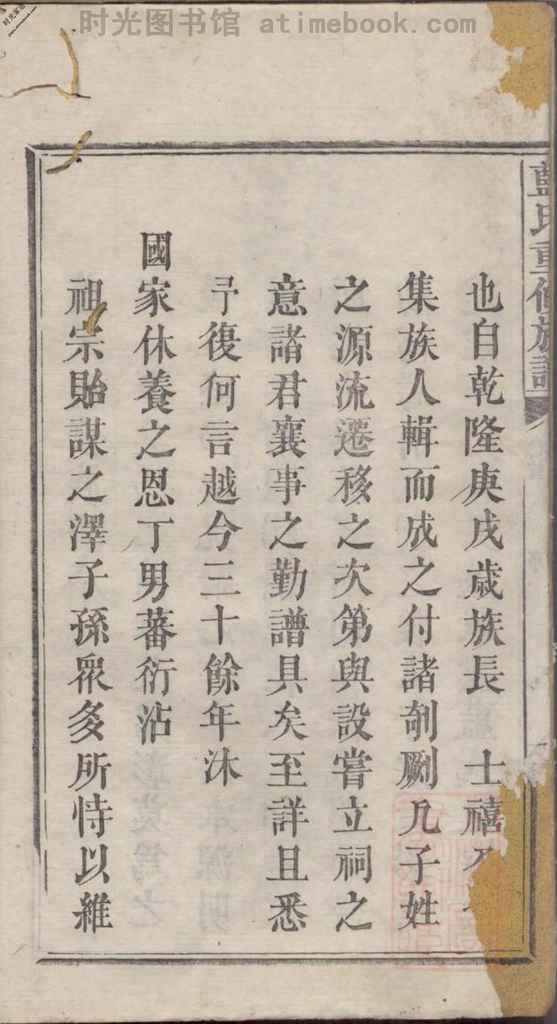 时光图书馆 atimebook.com
藍氏重修族譜
也自乾隆庚戌歲族長 士禧
集族人輯而成之付諸剞劂凢子姓
之源流遷移之次第與設嘗立祠之
意諸君襄事之勤譜具矣至詳且悉
予復何言越今三十餘年沐
國家休養之恩丁男蕃衍沾
祖宗貽謀之澤子孫眾多所恃以維